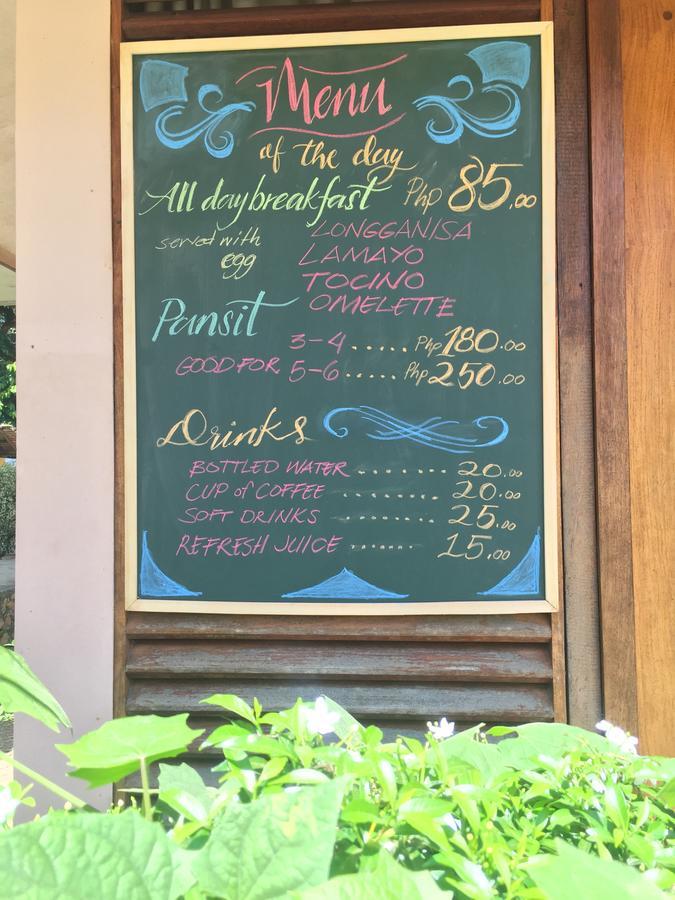 Menu
of the day
All day breakfast Php 85.00
served with egg
LONGGANISA
LAMAYO
TOCINO
OMELETTE
Pansit
GOOD FOR 3-4 ..... Php 180.00
5-6 ..... Php 250.00
Drinks
BOTTLED WATER ........ 20.00
CUP of COFFEE ........ 20.00
SOFT DRINKS ........ 25.00
REFRESH JUICE ....... 15.00